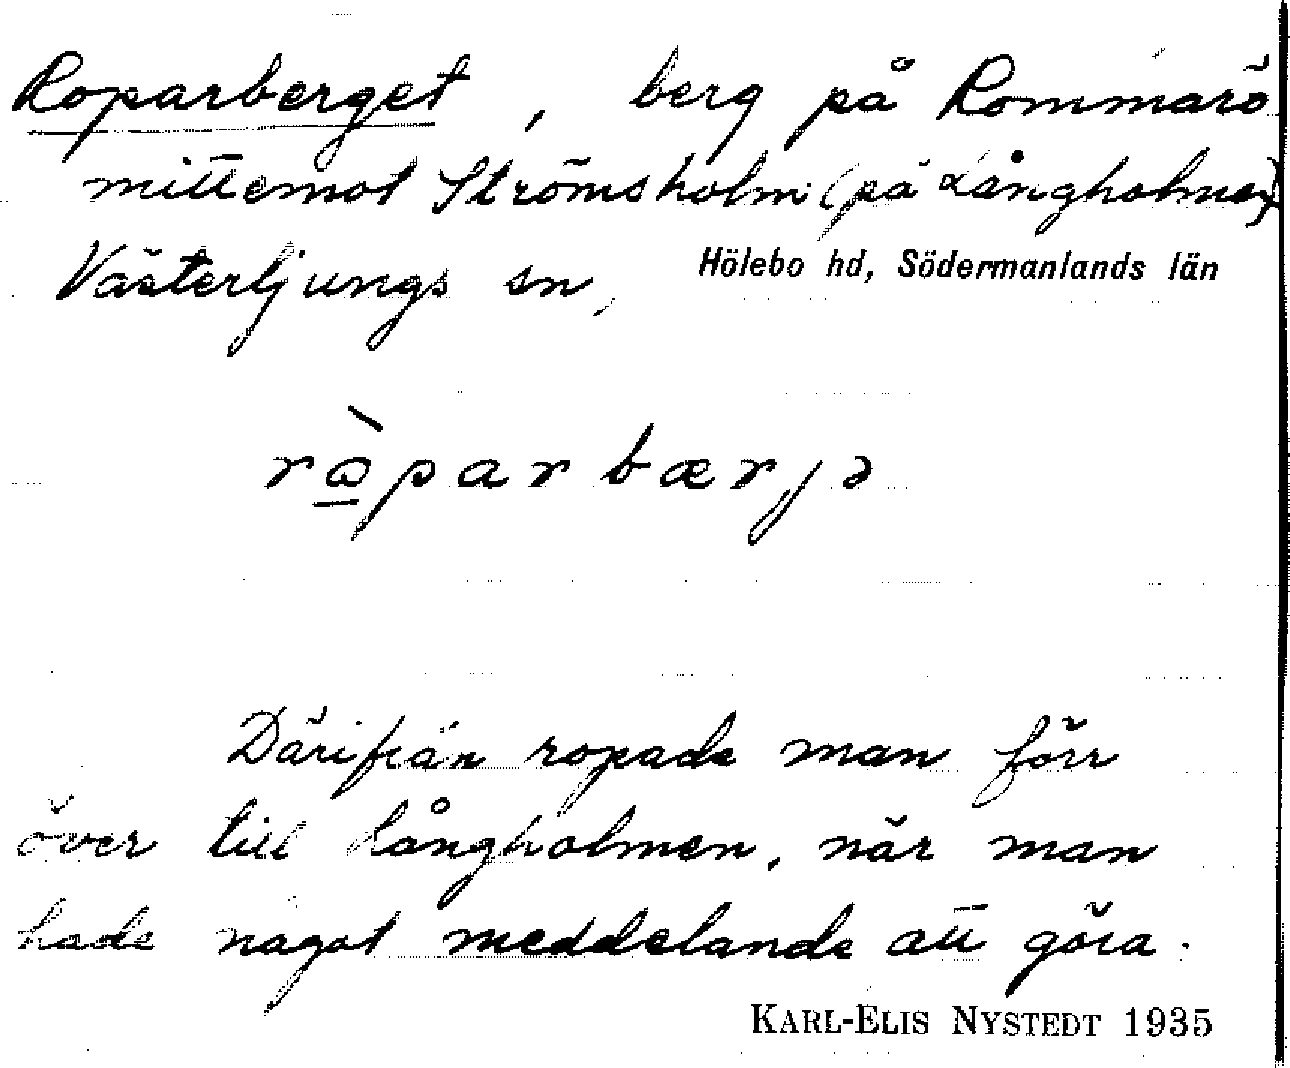 Roparberget, berg på Rommarö
mittemot Strömsholm (på Långholmen)
Västerljungs sn, Hölebo hd, Södermanlands län
rɷ̠̀parbærjə
Därifrån ropade man förr
över till Långholmen, när man
hade något meddelande att göra.
KARL-ELIS NYSTEDT 1935